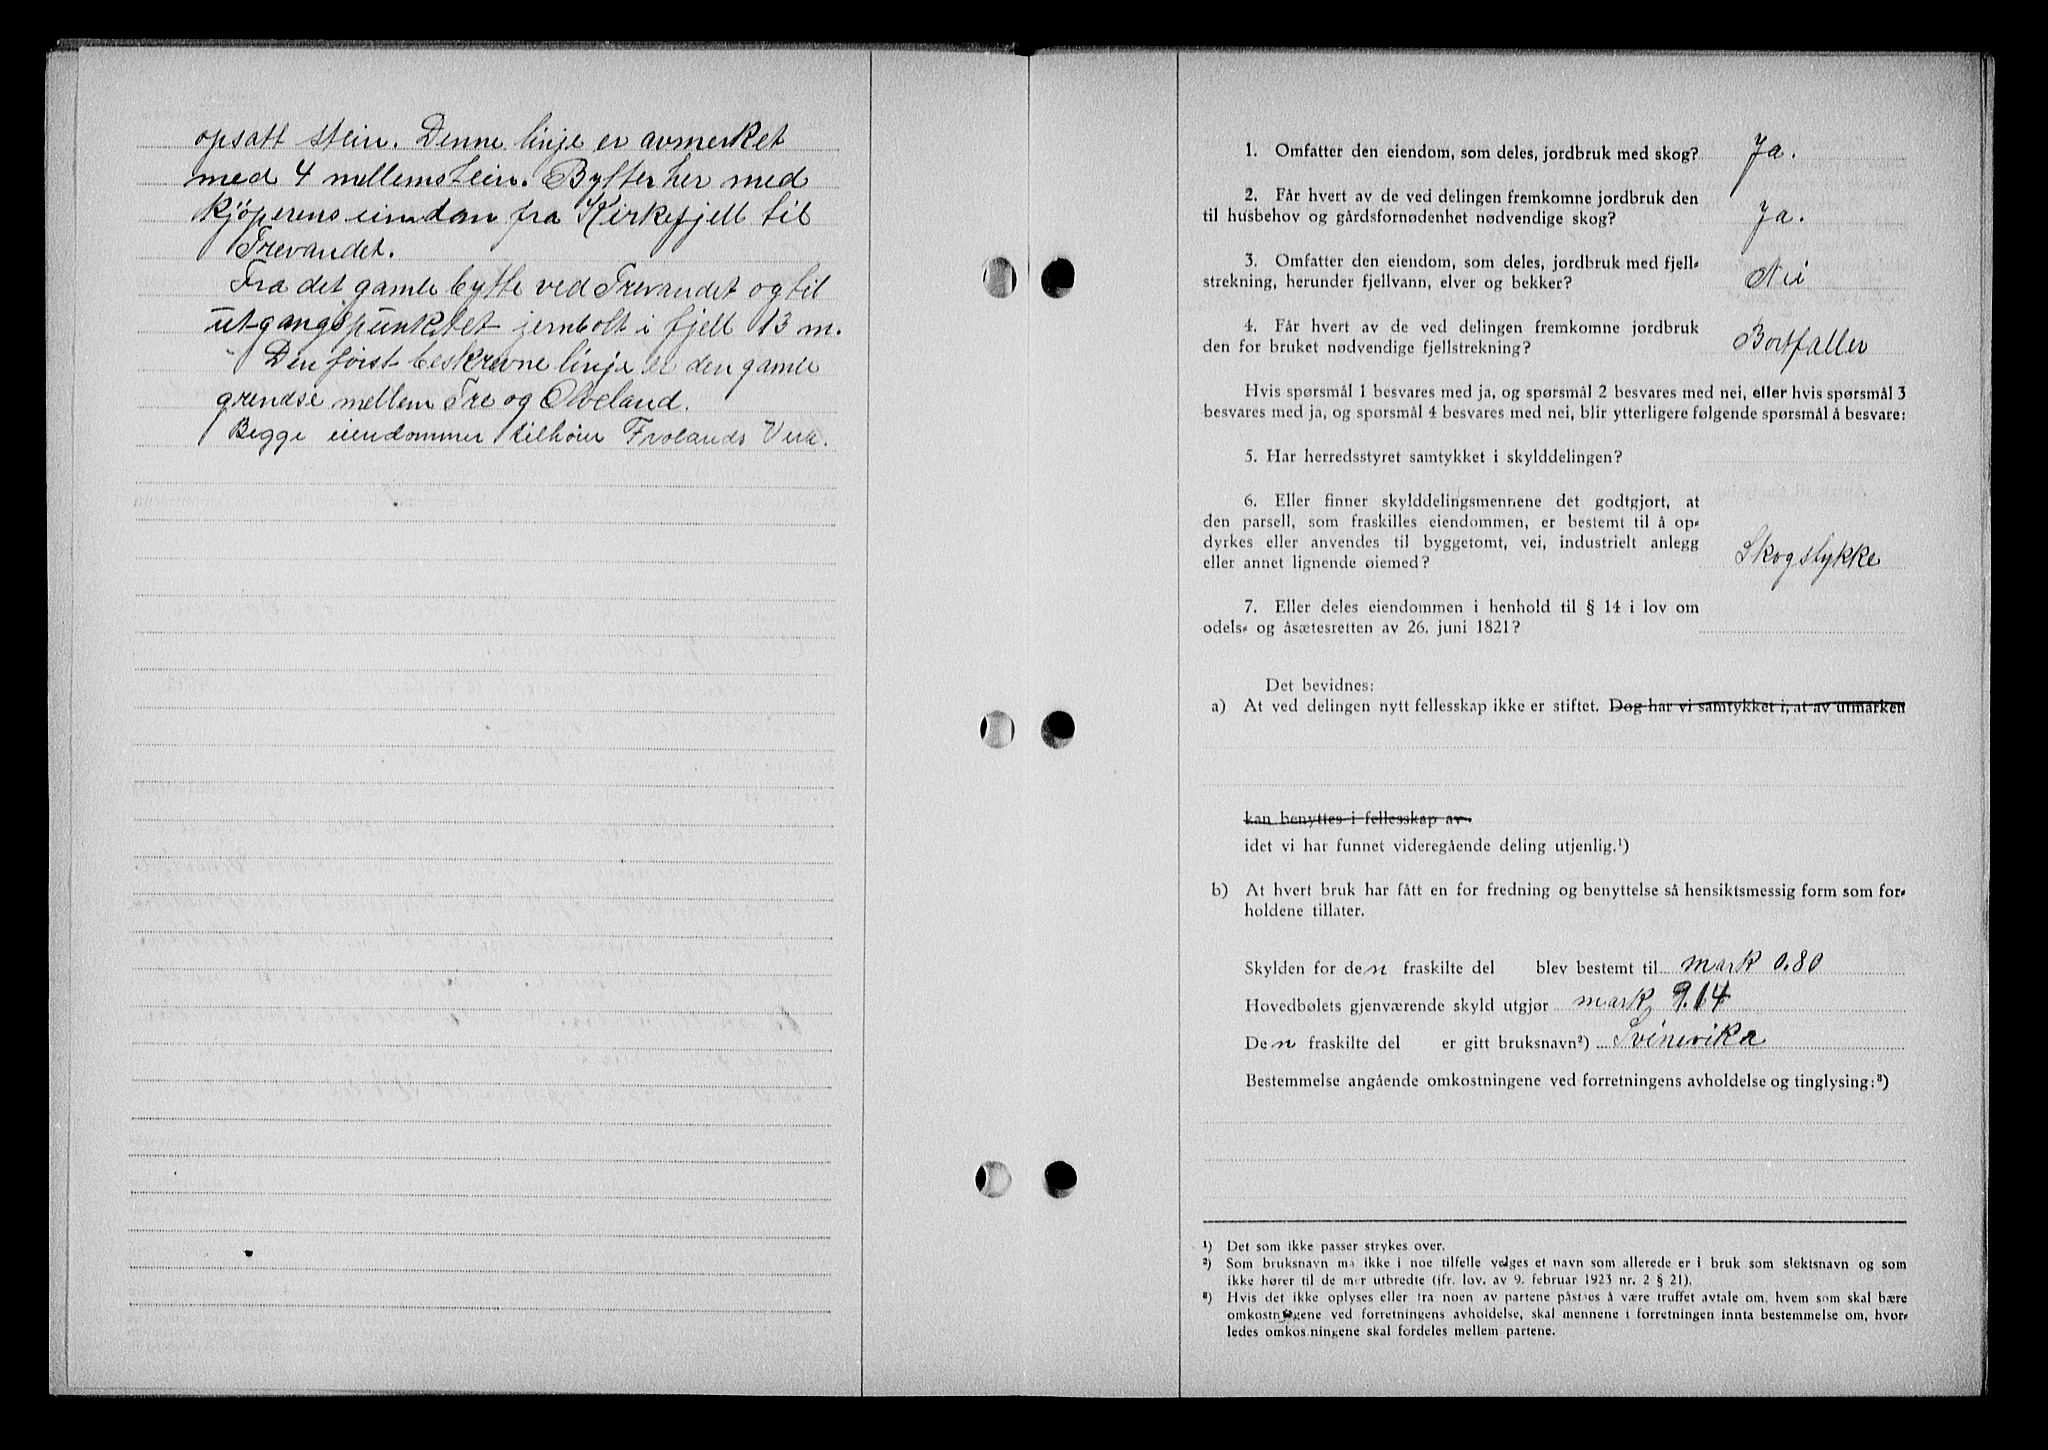 opsatt stein. Denne linje er avmerket
med 4 mellemstein. Bytter her med
kjöperens eiendom fra Kirkefjell til
Trevandet.
Fra det gamle bytte ved Trevandet og til
utgangspunktet jernbolt i fjell 13 m.
Den först beskrevne linje er den gamle
grendse mellem Tre og Olveland.
Begge eiendommer tilhöier Frolands Verk.
1. Omfatter den eiendom, som deles, jordbruk med skog? Ja.
2. Får hvert av de ved delingen fremkomne jordbruk den
til husbehov og gårdsfornødenhet nødvendige skog? Ja.
3. Omfatter den eiendom, som deles, jordbruk med fjell-
strekning, herunder fjellvann, elver og bekker? Nei
4. Får hvert av de ved delingen fremkomne jordbruk
den for bruket nødvendige fjellstrekning? Bortfaller
Hvis spørsmål 1 besvares med ja, og spørsmål 2 besvares med nei, eller hvis spørsmål 3
besvares med ja, og spørsmål 4 besvares med nei, blir ytterligere følgende spørsmål å besvare:
5. Har herredsstyret samtykket i skylddelingen?
6. Eller finner skylddelingsmennene det godtgjort, at
den parsell, som fraskilles eiendommen, er bestemt til å op-
dyrkes eller anvendes til byggetomt, vei, industrielt anlegg
eller annet lignende øiemed? Skogstykke
7. Eller deles eiendommen i henhold til § 14 i lov om
odels- og åsætesretten av 26. juni 1821?
Det bevidnes:
a) At ved delingen nytt fellesskap ikke er stiftet. Dog har vi samtykket i, at av utmarken
kan benyttes i fellesskap av
idet vi har funnet videregående deling utjenlig.¹)
b) At hvert bruk har fått en for fredning og benyttelse så hensiktsmessig form som for-
holdene tillater.
Skylden for den fraskilte del blev bestemt til mark 0.80
Hovedbølets gjenværende skyld utgjør mark 9.14
Den fraskilte del er gitt bruksnavn²) Svinevika
Bestemmelse angående omkostningene ved forretningens avholdelse og tinglysing:³)
¹) Det som ikke passer strykes over.
²) Som bruksnavn ma ikke i noe tilfelle velges et navn som allerede er i bruk som slektsnavn og som
ikke hører til de mer utbredte (jfr. lov. av 9. februar 1923 nr. 2 § 21).
³) Hvis det ikke oplyses eller fra noen av partene påståes å være truffet avtale om, hvem som skal bære
omkostningene ved forretningens avholdelse, skal mennene i forretningen innta bestemmelse om, hvor-
ledes omkostningene skal fordeles mellem partene.